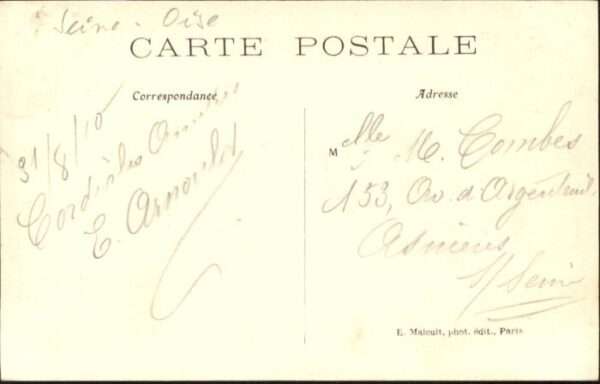 Seine-Oise
CARTE POSTALE
Correspondance
31/8/10
Cordiales Amitiés
E. Arnould
Adresse
Melle M. Combes
153, Av. d'Argenteuil
Asnières
s/ Seine
E. Malcuit, phot. édit., Paris